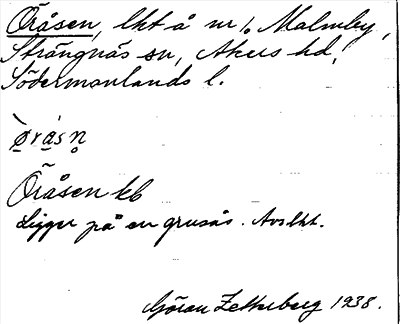 Öråsen, lht å nr 1, Malmby,
Strängnäs sn, Åkers hd,
Södermanlands l.
Öråsen kb
Ligger på en grusås. Avslht.
Göran Zetterberg 1938.